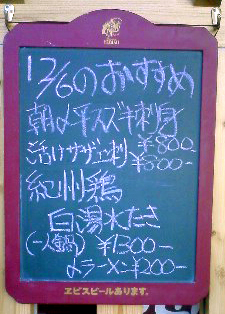 12/6のおすすめ
朝〆平スズキ刺身
¥800
ごちカサザエ刺
¥800-
紀州鶏
白湯水たき
(一人鍋) ¥1300-
〆ラーメン ¥200-
ヱビスビールあります。